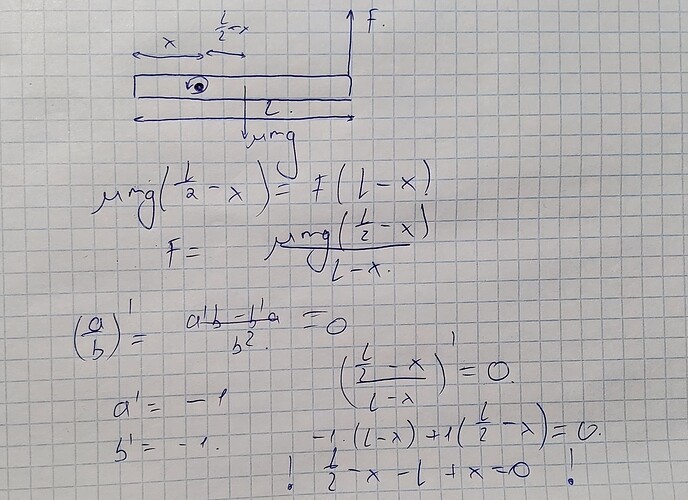 L/2 - x
x
F.
L.
μmg
μmg(L/2 - x) = F(L - x)
F = μmg(L/2 - x) / L - x.
(a/b)' = a'b - b'a / b². = 0
(L/2 - x / L - x)' = 0.
a' = -1
b' = -1.
-1·(L-x) + 1(L/2 - x) = 0.
! L/2 - x - L + x = 0 !